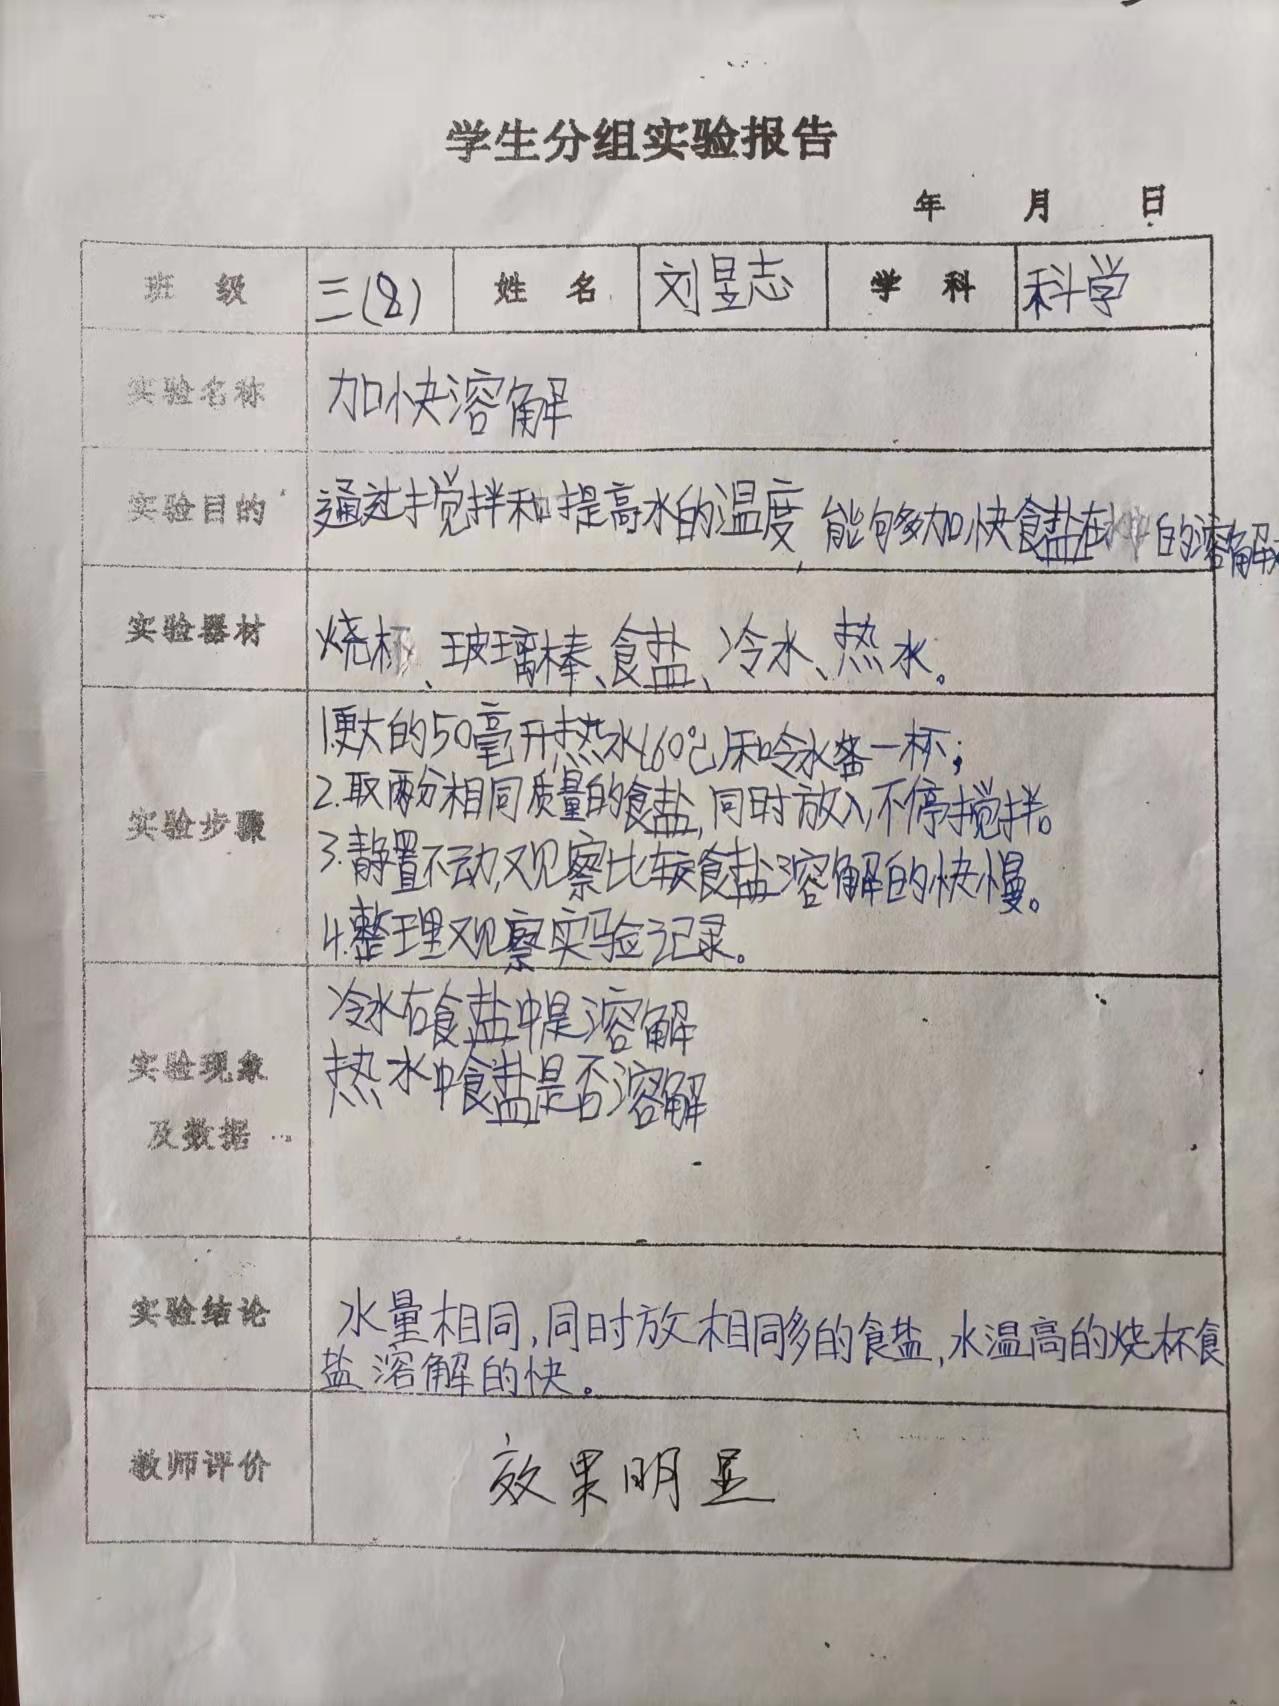 学生分组实验报告
年 月 日
班 级 三(8) 姓 名 刘昱志 学 科 科学
实验名称 加快溶解
实验目的 通过搅拌和提高水的温度,能够多加快食盐在水中的溶解
实验器材 烧杯、玻璃棒、食盐、冷水、热水。
1.更大的50毫升热水(60℃)和冷水备一杯;
2.取两份相同质量的食盐,同时放入,不停搅拌。
实验步骤
3.静置不动,观察比较食盐溶解的快慢。
4.整理观察实验记录。
冷水在食盐中是溶解
热水中食盐是否溶解
实验现象
及数据
实验结论 水量相同,同时放相同多的食盐,水温高的烧杯食
盐溶解的快。
教师评价 效果明显